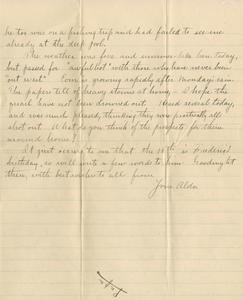 he too was on a fishing trip and had failed to see me
already at the deep pool.
The weather was fine and summer-like here today,
but passed for "awful hot" with those who have never been
"out west". Corn is growing rapidly after Monday's rain.
The papers tell of heavy storms at . I hope the
quail have not been drowned out. I heard several today,
and was much pleased, thinking they were practically all
shot out. What do you think of the prospects for them
around home?
It just occurs to me that the 10th is Frederic's
birthday, so will write a few words to him. Goodnight
then, with best wishes to all from,
Your Aldo.